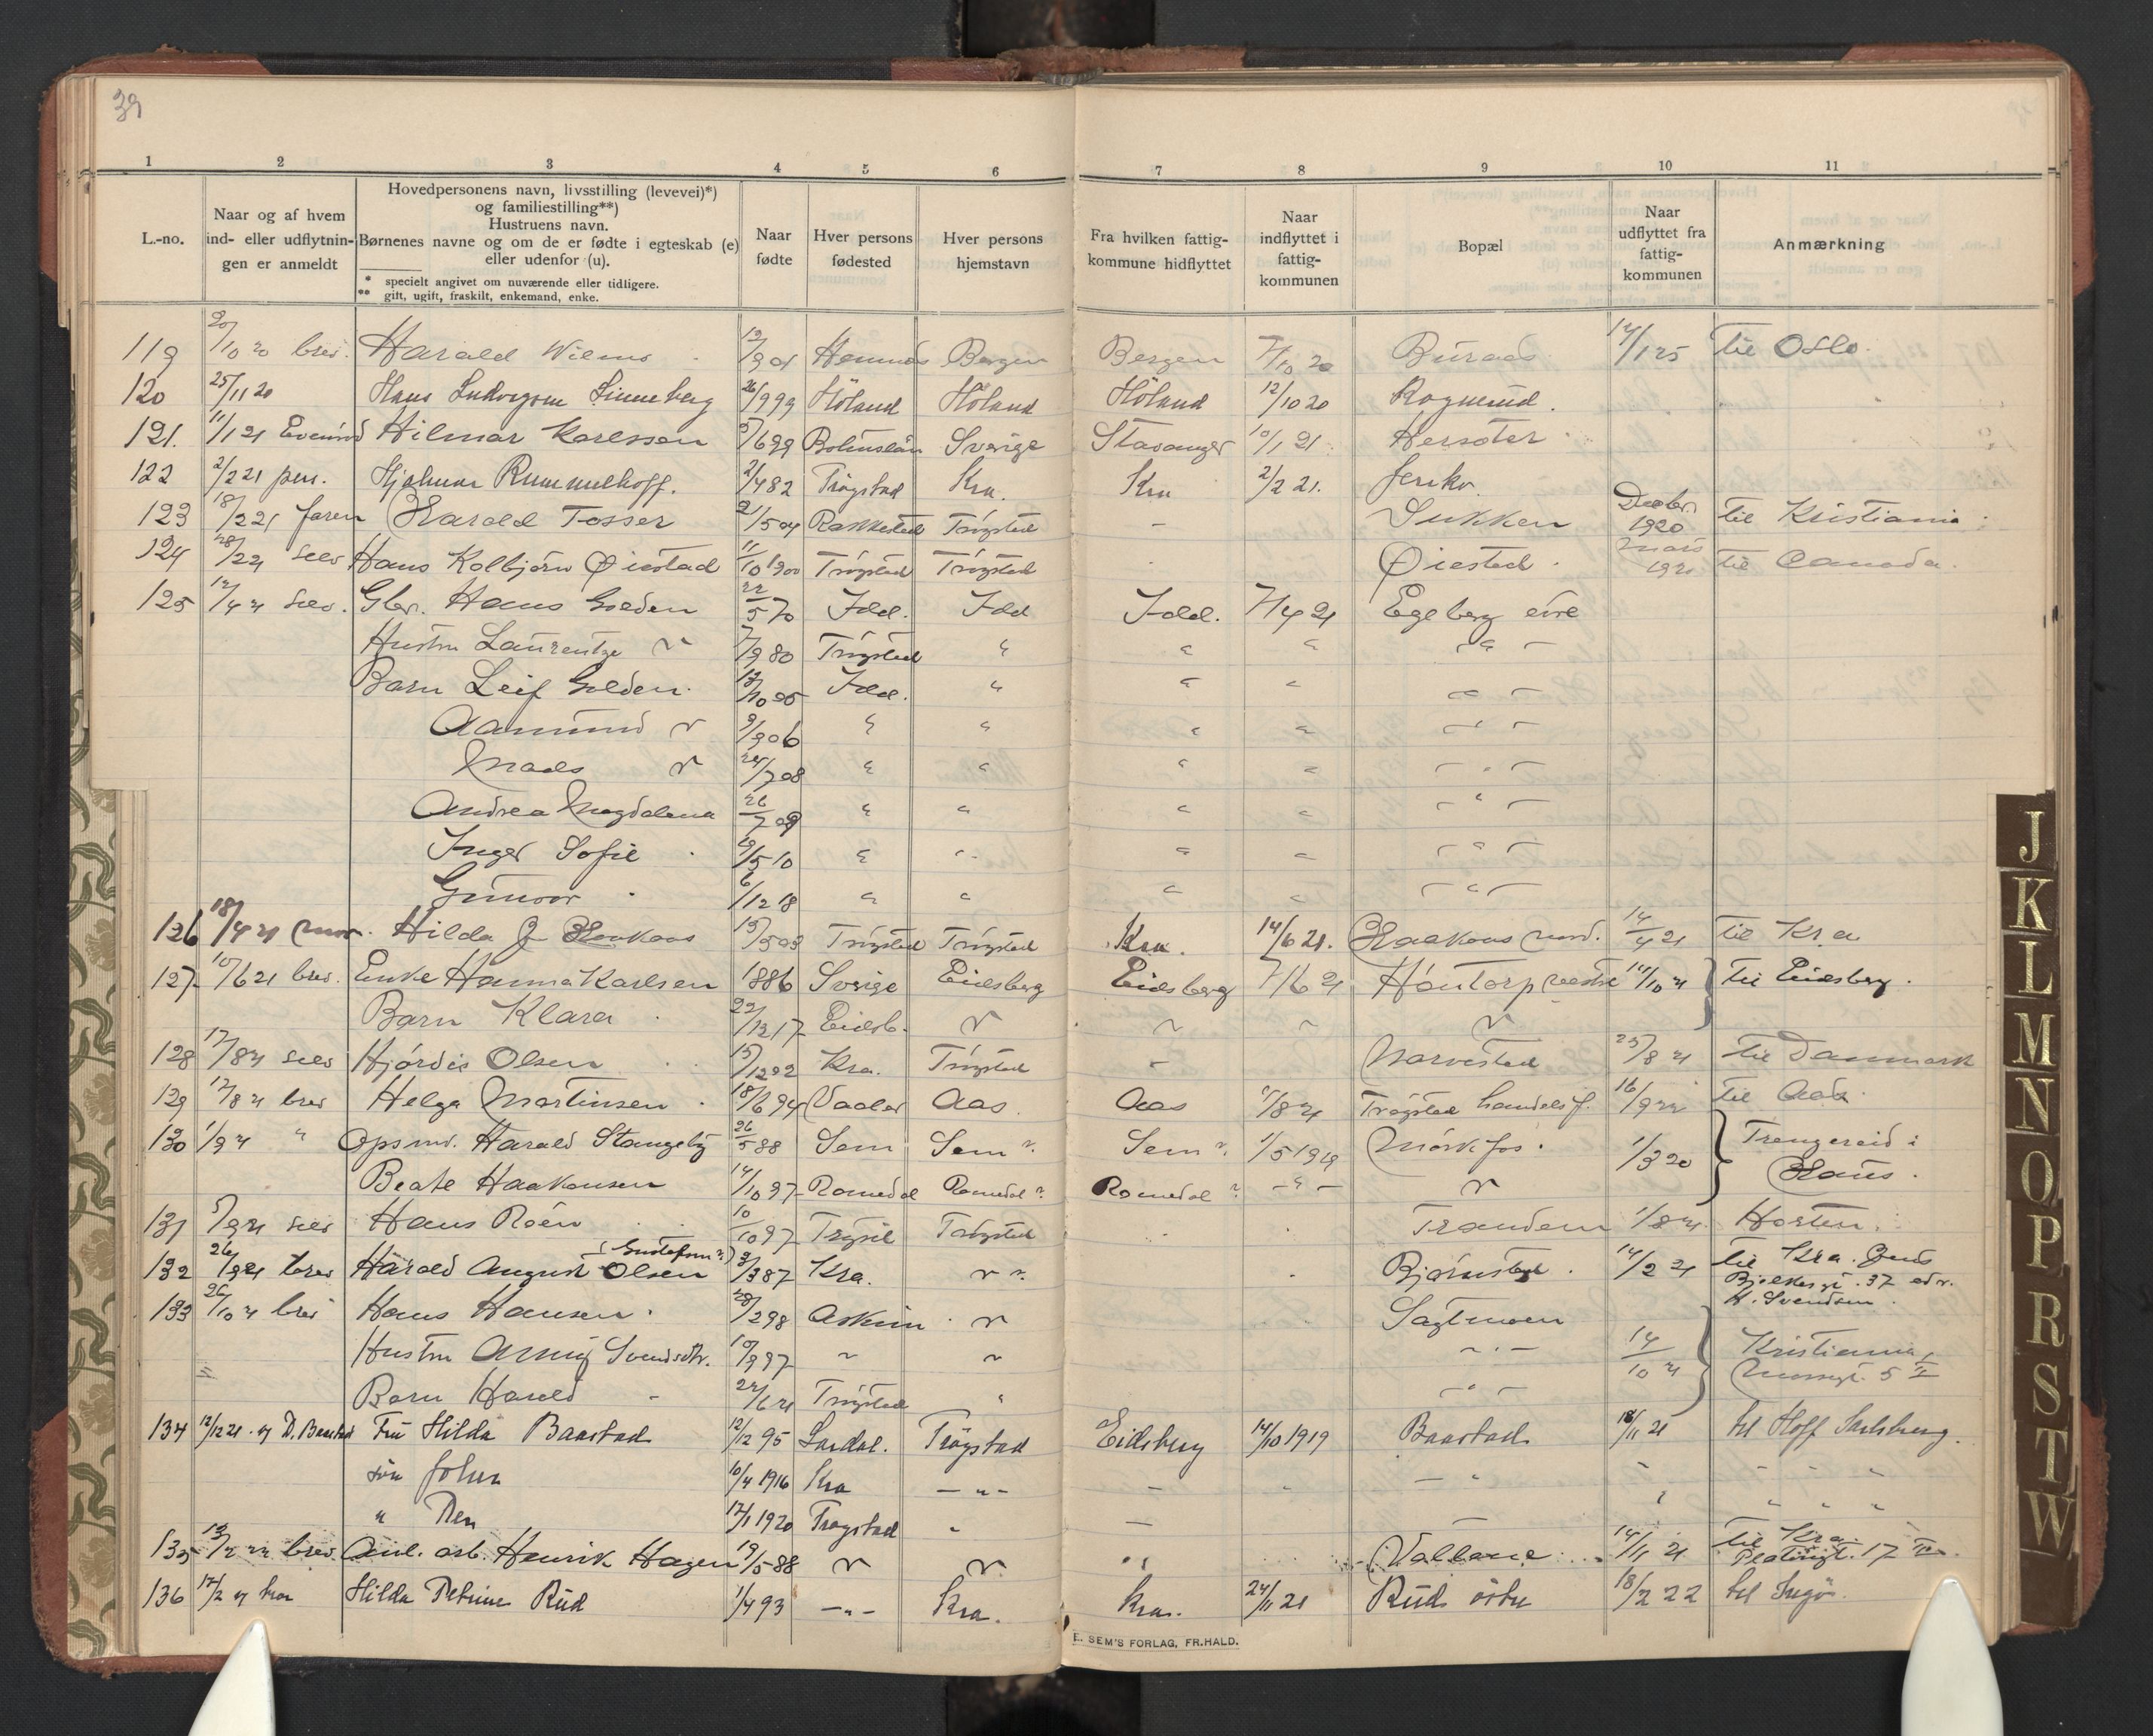 39
1 2 3 4 5 6 7 8 9 10 11
L.-no.
Naar og af hvem
ind- eller udflytnin-
gen er anmeldt
Hovedpersonens navn, livsstilling (levevei)*)
og familiestilling**)
Hustruens navn.
Børnenes navne og om de er fødte i egteskab (e)
eller udenfor (u).
* specielt angivet om nuværende eller tidligere.
** gift, ugift, fraskilt, enkemand, enke.
Naar
fødte
Hver persons
fødested
Hver persons
hjemstavn
Fra hvilken fattig-
kommune hidflyttet
Naar
indflyttet i
fattig-
kommunen
Bopæl
Naar
udflyttet fra
fattig-
kommunen
Anmærkning
119 20/10 20 brev. Harald Wilms 904 Hemnes Bergen Bergen 7/10 20 Buraas 1/25 Til Oslo.
120 25/11 20 Hans Ludvigsen Linneberg 26/9 99 Höland Höland Höland 12/10 20 Rognerud.
121. 11/1 21 Hilmar Karlssen 5/6 99 Bohuslän Sverige Stavanger 10/1 21 Hersæter
122 2/2 21 pers. Hjalmar Rummelhoff. 2/4 82 Trögstad Kra. Kra 2/2 21. Jeriko.
123 18/2 21 faren Harald Tosser 2/5 04 Rakkestad Trögstad - Sukken Decbr. 1920 Til Kristiania
124 28/2 21 selv Hans Kolbjørn Øiestad 11/10 1900 Trögstad Trögstad Øiestad. Mars 1921 Til Canada.
125 12/4 21 selv. Gbr. Hans Golden 22/5 70 Idd. Idd Idd. 7/4 21 Egeberg øvre
Hustru Laurentze 7/9 80 Trögstad " " " "
Barn Leif Golden. 05 Idd. " " " "
Aamund 9/9 06 " " " " "
Mads 24/7 08 " " " " "
Andrea Magdalena 26/7 09 " " " " "
Inger Sofie 5 10 " " " " "
Gunvor 6/12 18 " " " " "
126 18/4 21 Hilda J. Haakaas 5 03 Trögstad Trögstad Kra. 14/6 21. Haakaas 14/4 21 Til Kra
127 10/6 21 brev. Enke Hanna Karlsen 1886 Sverige Eidsberg Eidsberg 7/6 21 Höntorp vestre 10 21 Til Eidsberg.
Barn Klara 22/12 17 Eidsb.
128 17/8 21 selv Hjördis Olsen 15/12 92 Kra. Trögstad - Narvestad 25/8 21 Til Danmark
129 17/8 21 brev Helga Martinsen 18/6 94 Vaaler Aas Aas 8 21 Trögstad handelsf. 16/9 22 Til Aas.
130 1/9 21 " Opsmd. Harald Stangeby 26/5 88 Sem Sem ? Sem ? 1/5 1919 Mörkfos. 1/3 20 Trengereid i
Beate Haakonsen 14/10 97 Romedal Romedal ? Romedal ? - " - Haus.
131 9 21 selv Hans Roén 10/10 97 Trysil Trögstad Trandem 1/8 21. Horten.
132 26/9 21 brev. Harald August Olsen (Gustafson ?) 3/3 87 Kra. Bjørnstad. 14/2 21 Til Kra.
37
H. Svendsen.
133 26/10 21 brev Hans Hansen. 28/2 98 Askim Sagtmoen
Hustru Svendsdtr. 10/9 97 14/10 21 Kristiania,
5 II
Barn Harald 22/6 21 Trögstad "
134 12/12 21. D. Baastad Fru Hilda Baastad 12/12 95 Lardal. Trögstad Eidsberg 14/10 1919 Baastad 18/11 21 til Hoff Jarlsberg.
sön John 10/4 1916 Kra - " -
" Per 17/1 1920 Trögstad "
135 brev Henrik Hagen 19/5 88 14/11 21 Til Kra. 17
136 17/2 Hilda Petrine Rud 1/4 93 - " - Kra. Kra. 24/11 21 Rud østre 18/2 22 til
E. SEM'S FORLAG, FR.HALD.
J
K
L
M
N
O
P
R
S
T
W